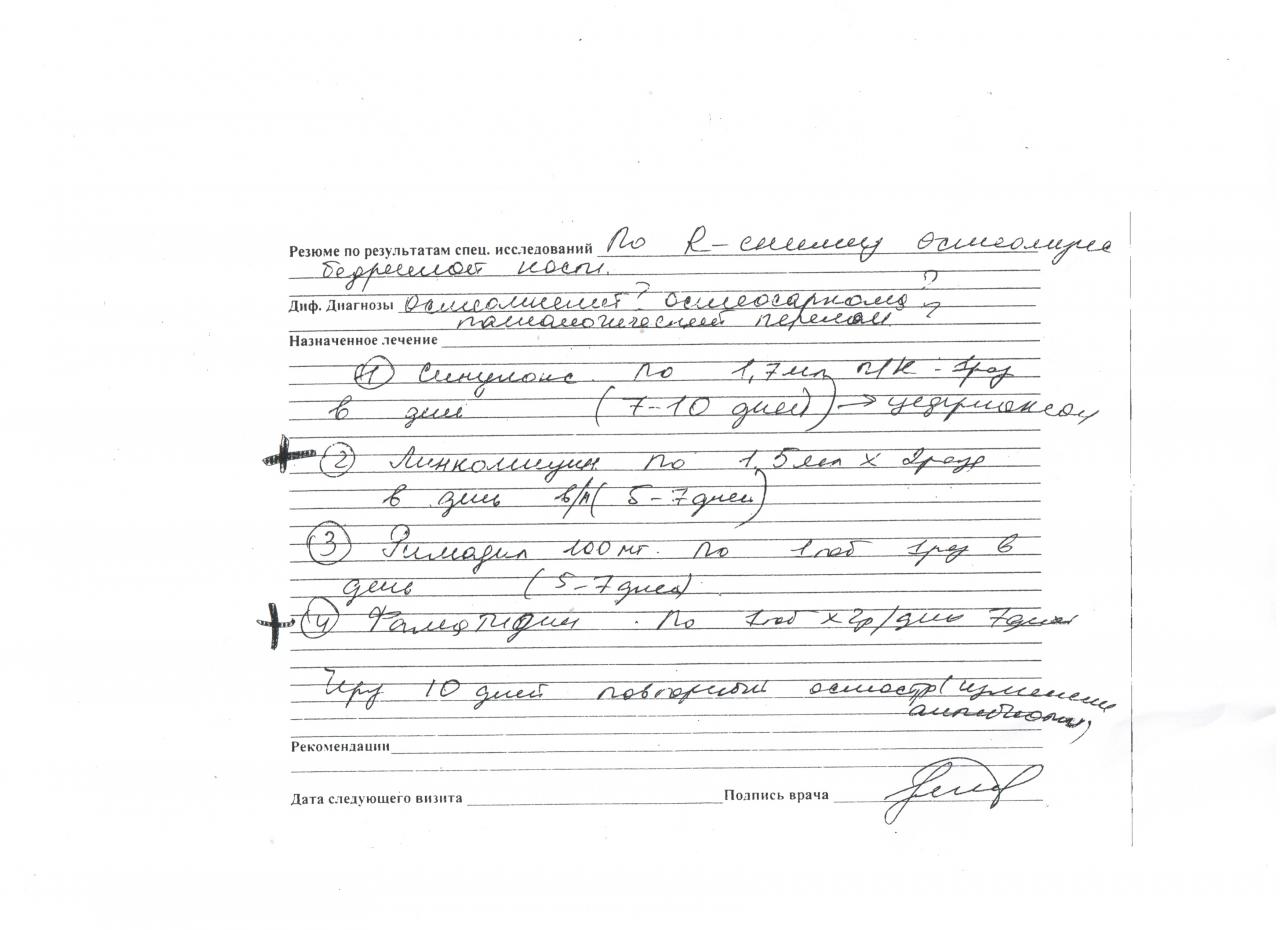 Резюме по результатам спец. исследований По R-снимку остеолизис
бедренной кости.
Диф. Диагнозы Остеомиелит? остеосаркома ?
патологический перелом ?
Назначенное лечение
1 Синулокс по 1,7 мл п/к - 1раз
в день (7-10 дней) → цефтриаксон
+ 2 Линкомицин по 1,5 мл х 2раза
в день в/м (5-7 дней)
3 Римадил 100 мг. по 1таб 1раз в
день (5-7 дней)
+ 4 Фамотидин по 1таб х 2р/день 7дней
Через 10 дней повторный осмотр (изменение
антибиотика)
Рекомендации
Дата следующего визита Подпись врача